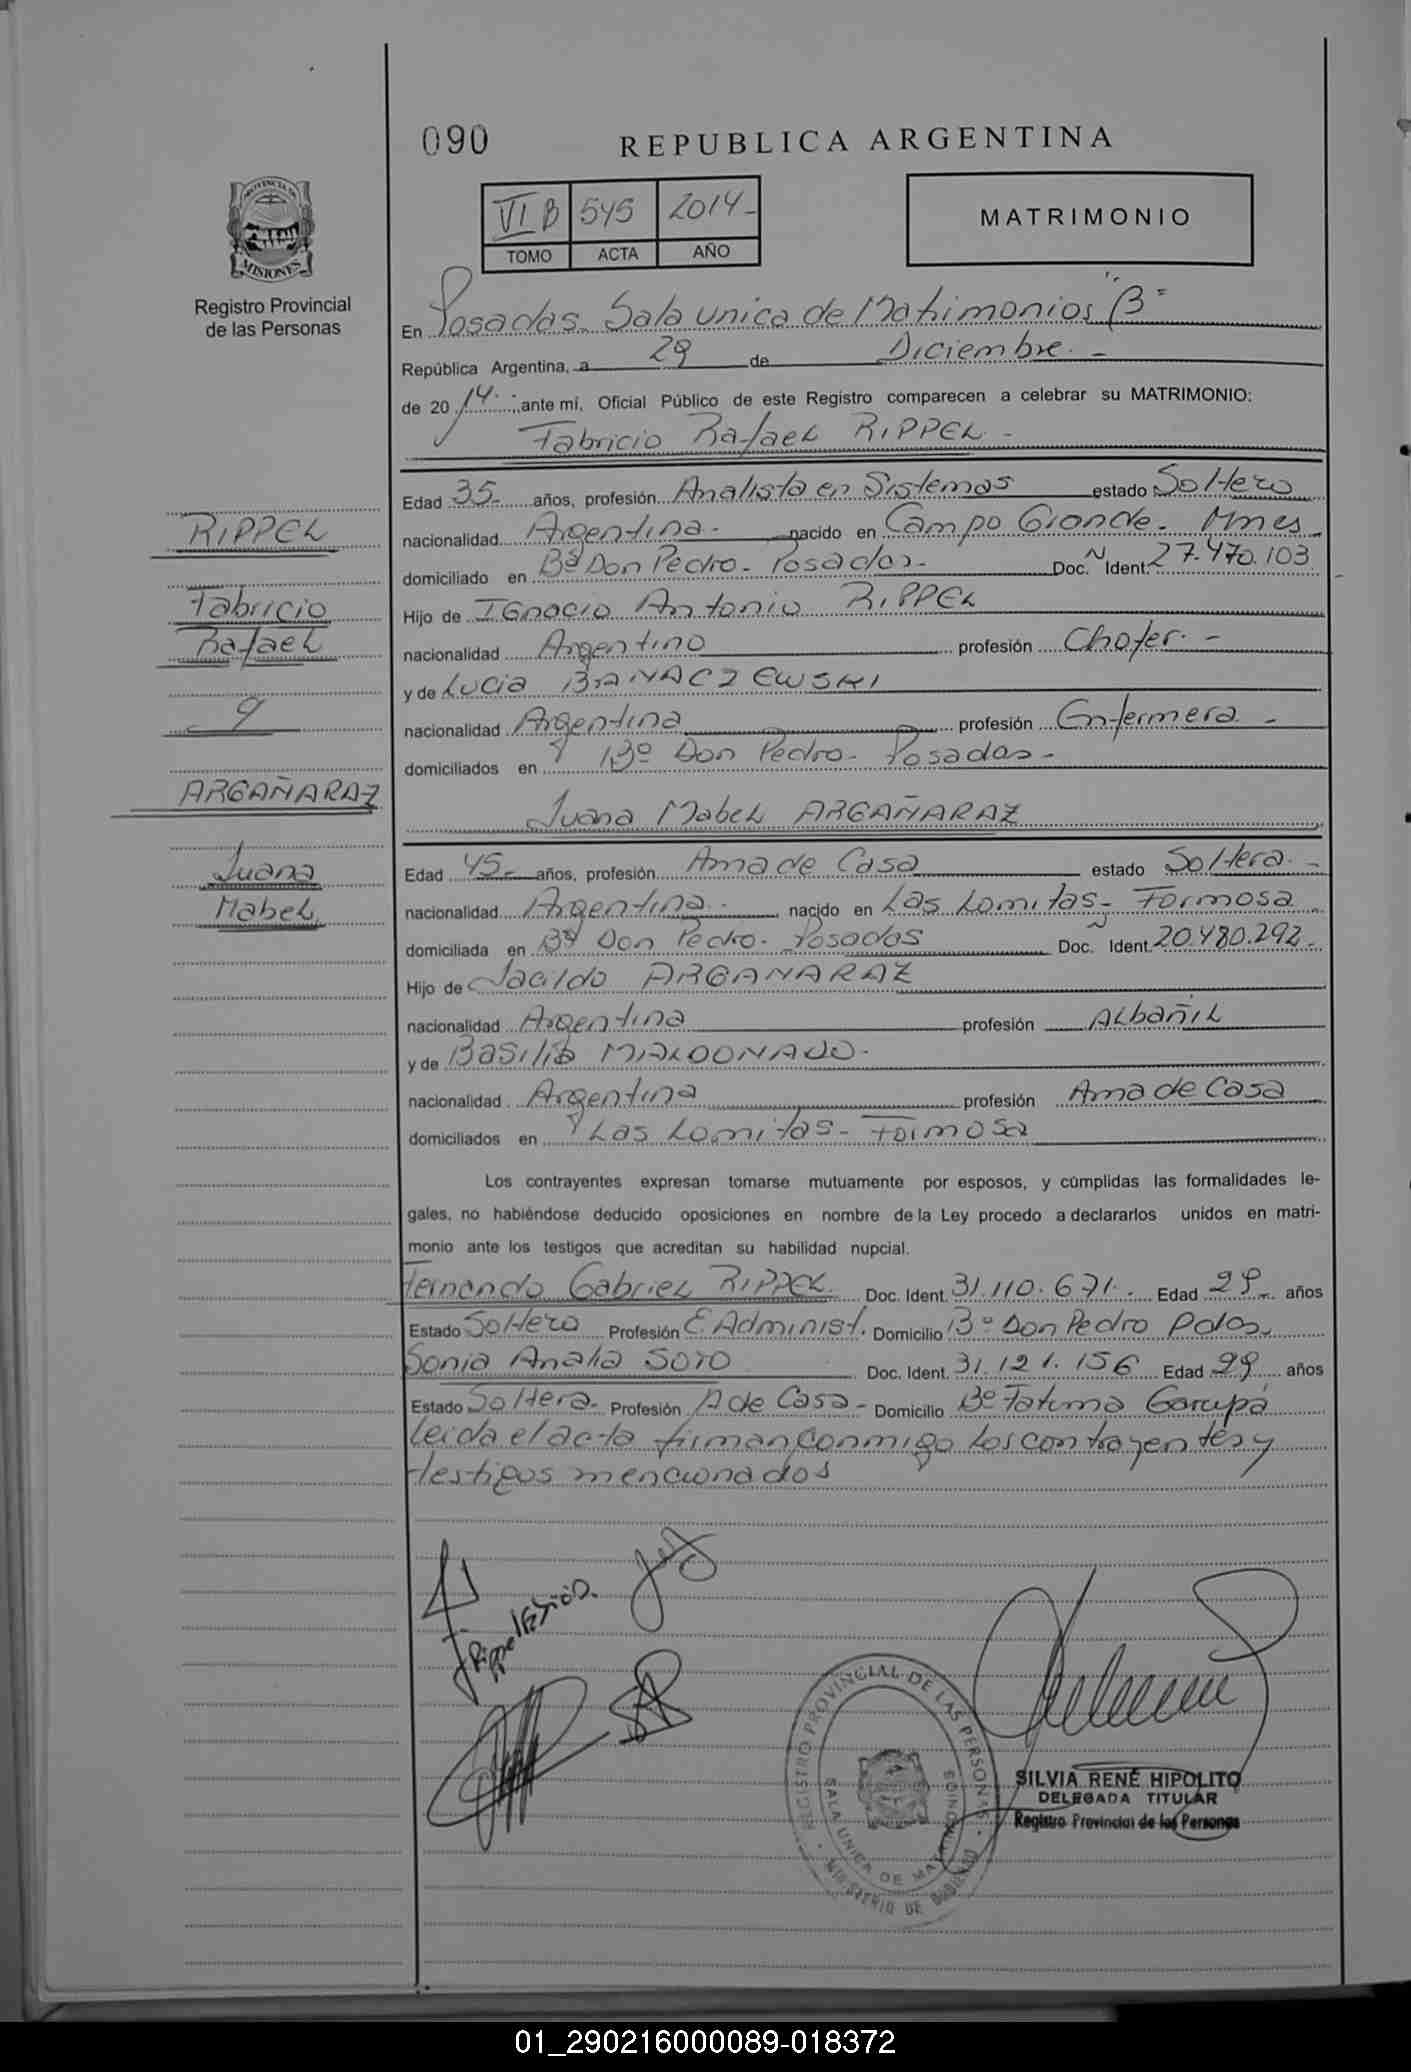 090
REPUBLICA ARGENTINA
VI B 545 2014-
TOMO ACTA AÑO
MATRIMONIO
PROVINCIA DE
MISIONES
Registro Provincial
de las Personas
En Posadas. Sala unica de Matrimonios "B"
República Argentina, a 29 de Diciembre. -
de 20 14. ante mí, Oficial Público de este Registro comparecen a celebrar su MATRIMONIO:
Fabricio Rafael RIPPEL -
Edad 35- años, profesión Analista en Sistemas estado Soltero
nacionalidad Argentina- nacido en Campo Grande- Mnes
domiciliado en Bº Don Pedro- Posadas- Doc. Ident. 27.470.103
Hijo de IGnacio Antonio RIPPEL
nacionalidad Argentino profesión Chofer. -
y de Lucia BANACZEWSKI
nacionalidad Argentina profesión Enfermera -
domiciliados en Bº Don Pedro- Posadas-
Juana Mabel ARGAÑARAZ
RIPPEL
Fabricio
Rafael
y
ARGAÑARAZ
Juana
Mabel
Edad 45- años, profesión Ama de Casa estado Soltera. -
nacionalidad Argentina- nacido en Las Lomitas- Formosa
domiciliada en Bº Don Pedro- Posadas Doc. Ident. 20.480.292-
Hijo de Jacildo ARGAÑARAZ
nacionalidad Argentina profesión Albañil
y de Basilia MALDONADO-
nacionalidad Argentina profesión Ama de Casa
domiciliados en Las Lomitas- Formosa
Los contrayentes expresan tomarse mutuamente por esposos, y cúmplidas las formalidades le-
gales, no habiéndose deducido oposiciones en nombre de la Ley procedo a declararlos unidos en matri-
monio ante los testigos que acreditan su habilidad nupcial.
Fernando Gabriel RIPPEL Doc. Ident. 31.110.671- Edad 29- años
Estado Soltero Profesión E. Administ. Domicilio Bº Don Pedro Pdas.
Sonia Analia SOTO Doc. Ident. 31.121.156 Edad 29 años
Estado Soltera- Profesión A de Casa- Domicilio Bº Fatima Garupá
Leida el acta firman conmigo los contrayentes y
testigos mencionados
REGISTRO PROVINCIAL DE LAS PERSONAS
SALA UNICA DE MATRIMONIOS
MINISTERIO DE GOBIERNO
SILVIA RENÉ HIPOLITO
DELEGADA TITULAR
Registro Provincial de las Personas
01_290216000089-018372